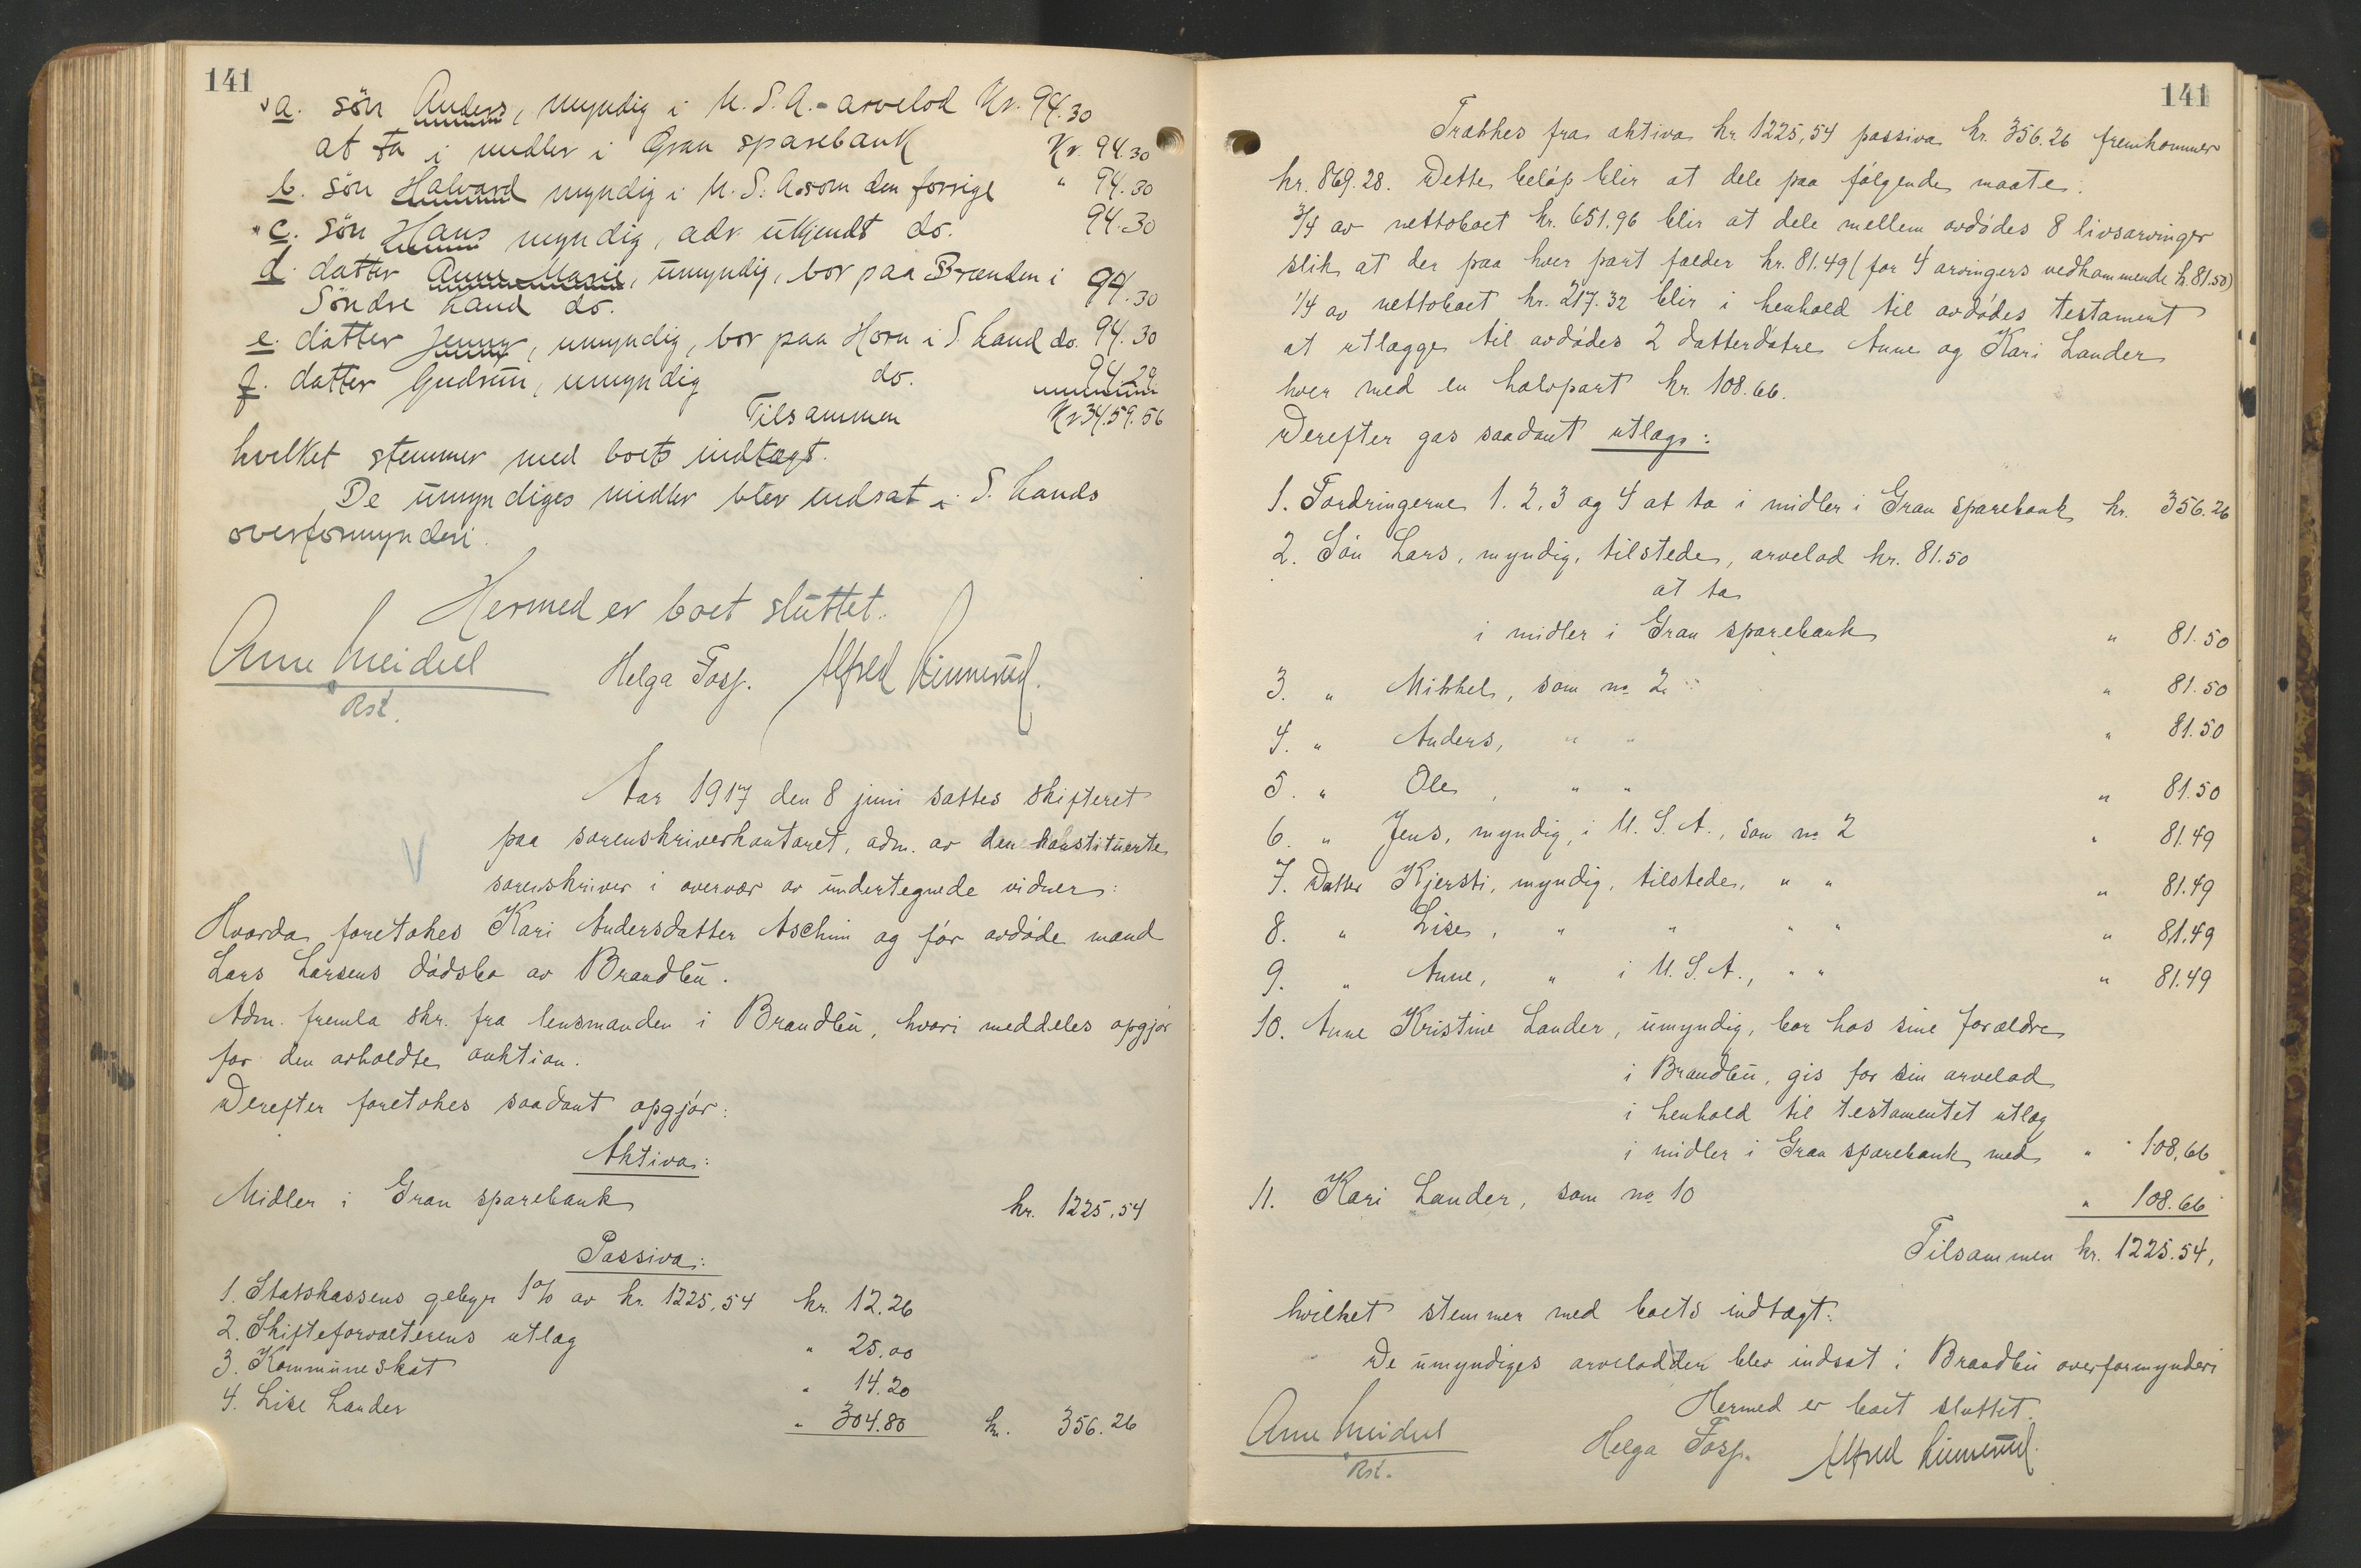 141
a. sön Anders, myndig i U.S.A. - arvelod Kr. 94.30
at ta i midler i Gran sparebank Kr. 94.30
b. sön Halvard myndig i U.S.A. som den forrige " 94.30
c. sön Hans myndig, adr. ukjendt do. 94.30
d. datter Anne Marie, umyndig, bor paa Brænden i
Söndre Land do. 94.30
e. datter Jenny, umyndig, bor paa Horn i S. Land do. 94.30
f. datter Gudrun, umyndig do. 94.29
Tilsammen Kr 3459.56
hvilket stemmer med boets indtægt.
De umyndiges midler blev indsat i S. Lands
overformynderi.
Hermed er boet sluttet.
Arne Meidell Helga Fosp. Alfred Linnerud.
Kst.
Aar 1917 den 8 juni sattes skifteret
paa sorenskriverkontoret, adm. av den konstituerte
sorenskriver i overvær av undertegnede vidner:
Hvorda foretokes Kari Andersdatter Aschim og før avdøde mand
Lars Larsens dødsbo av Brandbu.
Adm. fremla skr. fra lensmanden i Brandbu, hvori meddeles opgjør
for den avholdte auktion.
Derefter foretokes saadant opgjør:
Aktiva:
Midler i Gran sparebank kr. 1225,54
Passiva:
1. Statskassens gebyr 1% av kr. 1225,54 kr. 12.26
2. Skifteforvalterens utlæg " 25.00
3. Kommuneskat " 14.20
4. Lise Lander " 304.80 kr. 356.26
141
Trækkes fra aktiva kr. 1225,54 passiva kr. 356.26 fremkommer
kr. 869.28. Dette beløp blir at dele paa følgende maate:
3/4 av nettoboet kr. 651.96 blir at dele mellem avdødes 8 livsarvinger
slik at der paa hver part falder kr. 81.49 (for 4 arvingers vedkommende k. 81.50)
1/4 av nettoboet kr. 217.32 blir i henhold til avdødes testament
at utlægge til avdødes 2 datterdøtre Anne og Kari Lander
hver med en halvpart kr. 108.66.
Derefter gas saadant utlæg:
1. Fordringerne 1. 2. 3 og 4 at ta i midler i Gran sparebank kr. 356.26
2. Søn Lars, myndig, tilstede, arvelod kr. 81.50
at ta
i midler i Gran sparebank " 81.50
3. " Mikkel, som no 2 " 81.50
4. " Anders, " " " 81.50
5. " Ole, " " " 81.50
6. " Jens, myndig, i U.S.A., som no 2 " 81.49
7. Datter Kjersti, myndig, tilstede, " " " 81.49
8. " Lise, " " " " " 81.49
9. " Anne, " i U.S.A., " " " 81.49
10. Anne Kristine Lander, umyndig, bor hos sine forældre
i Brandbu, gis for sin arvelod
i henhold til testamentet utlæg
i midler i Gran sparebank med " 108,66
11. Kari Lander, som no 10 " 108.66
Tilsammen kr. 1225.54,
hvilket stemmer med boets indtægt.
De umyndiges arvelodder blev indsat i Brandbu overformynderi
Hermed er boet sluttet.
Arne Meidell Helga Fosp. Alfred Linnerud.
Kst.